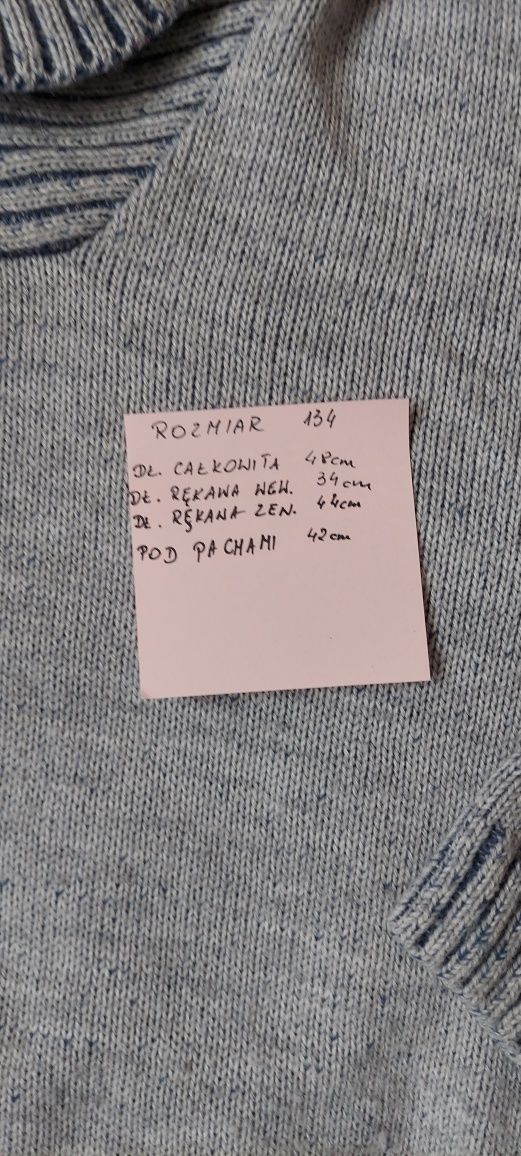 ROZMIAR 134
DŁ. CAŁKOWITA 48cm
DŁ. RĘKAWA WEW. 34cm
DŁ. RĘKAWA ZEW. 44cm
POD PACHAMI 42cm